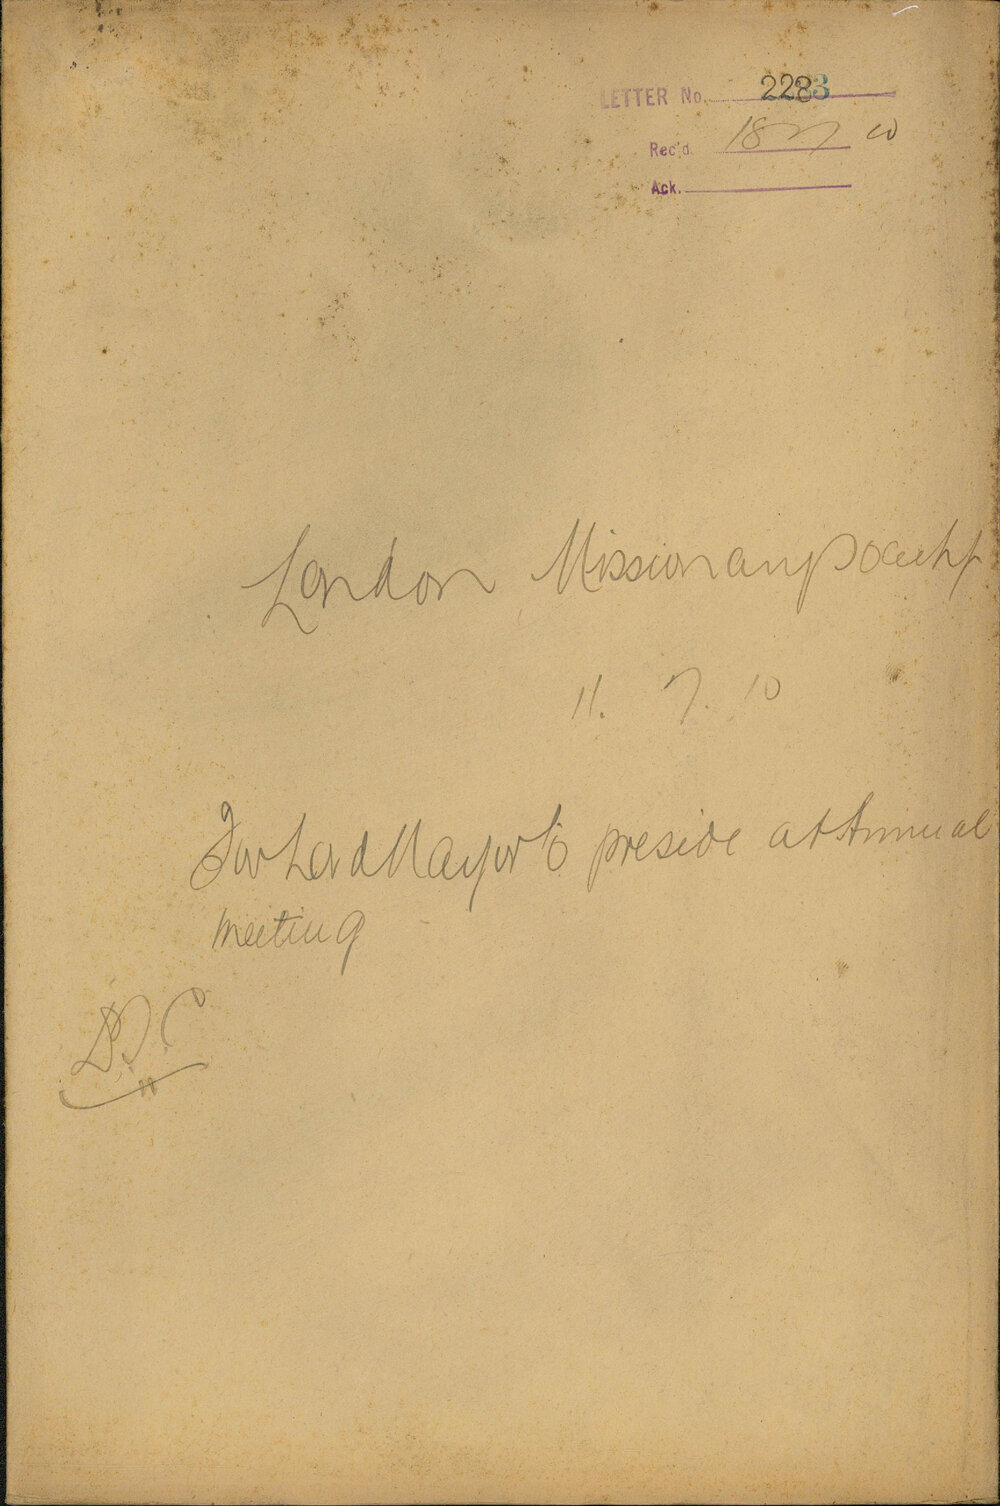 LETTER No. 2283
Rec'd. 18 7 10
Ack.
London Missionary Society
11. 7. 10
For Lord Mayor to preside at Annual
meeting